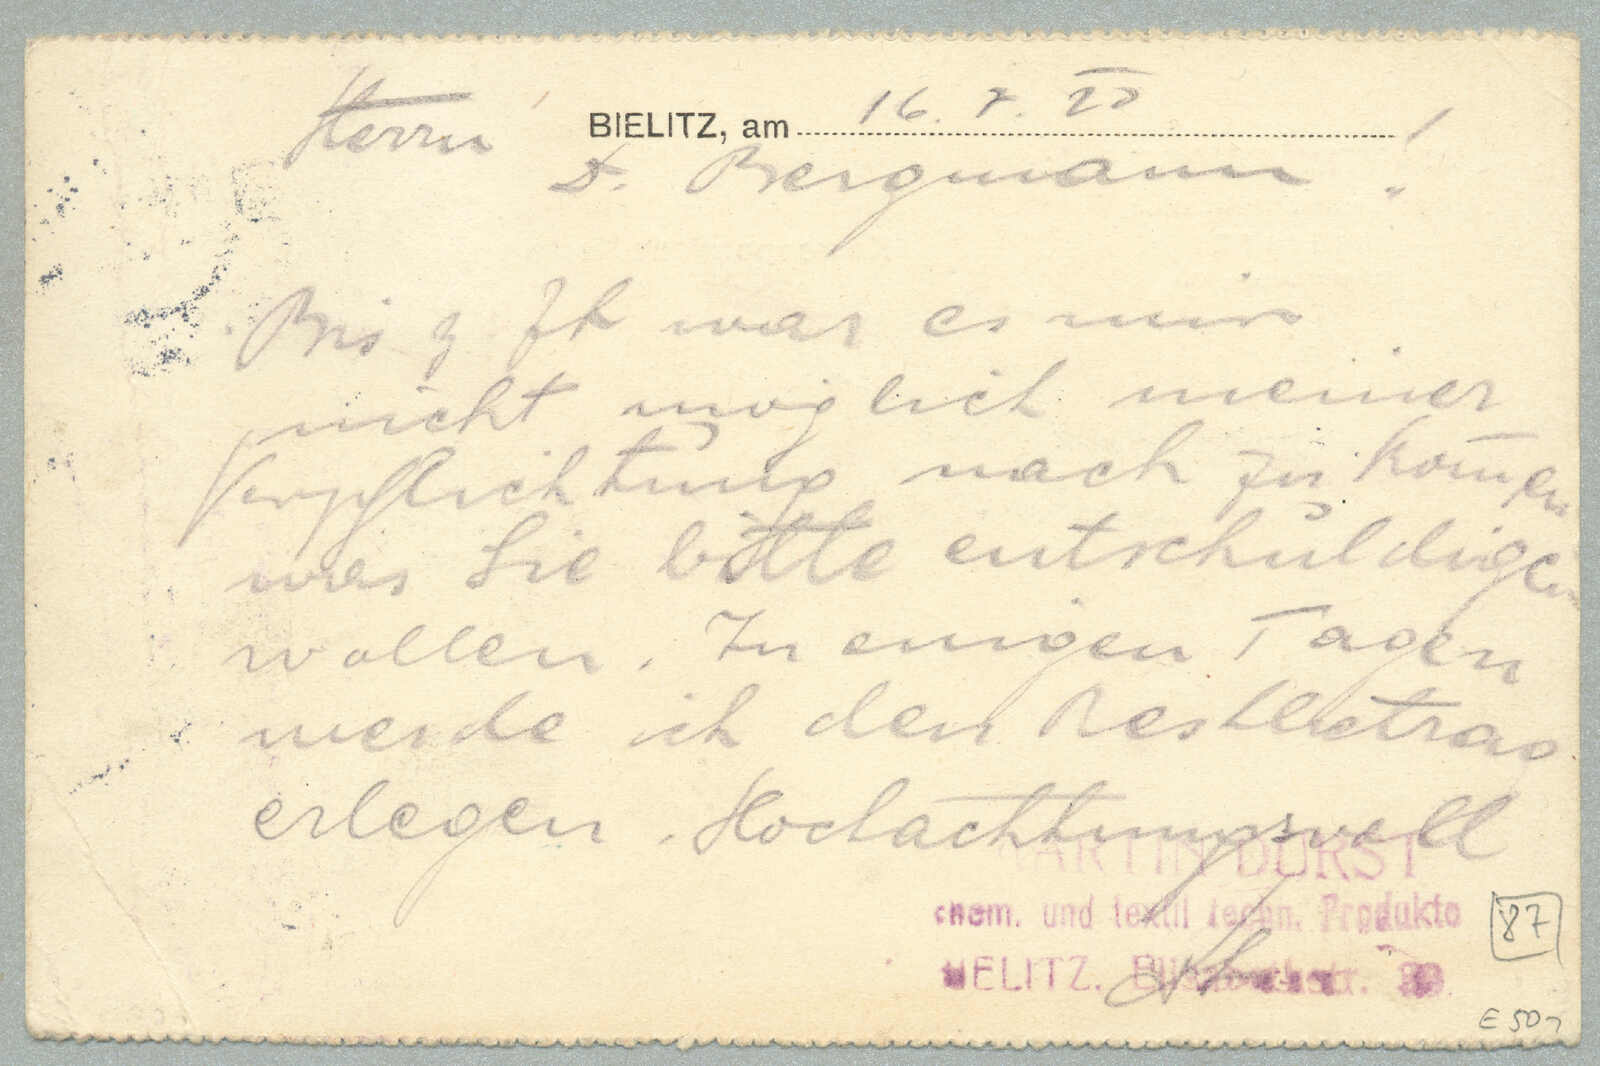 Herrn
BIELITZ, am 16. 7. 20
D. Bergmann!
Bis z Zt war es mir
nicht möglich meiner
Verpflichtung nach zu kom̄en
was Sie bitte entschuldigen
wollen. In einigen Tagen
werde ich den Restbetrag
erlegen. Hochachtungsvoll
MARTIN DURST
chem. und textil techn. Produkte
BIELITZ, Elisabethstr.
87
E 50